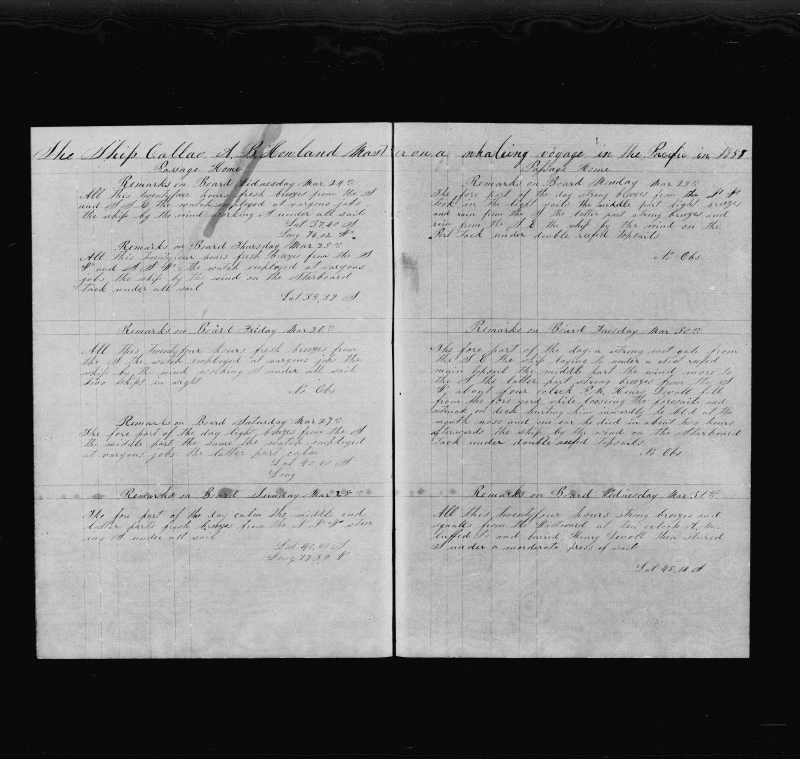 The Ship Callao A. B. Howland Master on a whaling voyage in the Pacific in 1858
Passage Home
Remarks on Board Wednesday Mar 24th
All this twentyfour hours fresh breezes from the S
and S S E the watch employed at varyous jobs
the ship by the wind working S under all sail
Lat 37,40 S
Long 76,02 W
Remarks on Board Thursday Mar 25th
All this twentyfour hours fresh breezes from the S
W and S S W the watch employed at varyous
jobs the ship by the wind on the Starboard
Tack under all sail
Lat 38,39 S
Remarks on Board Friday Mar 26th
All this twentyfour hours fresh breezes from
the S the watch employed at varyous jobs the
ship by the wind working S under all sail
two ships in sight
No Obs
Remarks on Board Saturday Mar 27th
The fore part of the day light breezes from the S
the middle part the same the watch employed
at varyous jobs the latter part calm
Lat 40,10 S
Long
Remarks on Board Sunday Mar 28th
The fore part of the day calm the middle and
latter parts fresh breezes from the N N W steer
ing S under all sail
Lat 40,40 S
Long 77,80 W
Passage Home
Remarks on Board Monday Mar 29th
The fore part of the day strong breezes from the N W
took in the light sails the middle part light breezes
and rain from the S the latter part strong breezes and
rain from the S E the ship by the wind on the
Port Tack under double reefed topsails
No Obs
Remarks on Board Tuesday Mar 30th
The fore part of the day a strong sail gale from
the S E the ship laying to under a close reefed
main topsail the middle part the wind more to
the S the latter part strong breezes from the S
W about four oclock P.M. Henry fell
from the fore yard while loosing the foresail and
struck on deck hurting him inwardly he bled at the
mouth nose and one ear he died in about two hours
afterwards the ship by the wind on the Starboard
Tack under double reefed topsails
No Obs
Remarks on Board Wednesday Mar 31st
All this twentyfour hours strong breezes and
squalls from the Westward at ten oclock A. M.
luffed to and buried Henry then steered
S under a morderate press of sail
Lat 45,10 S